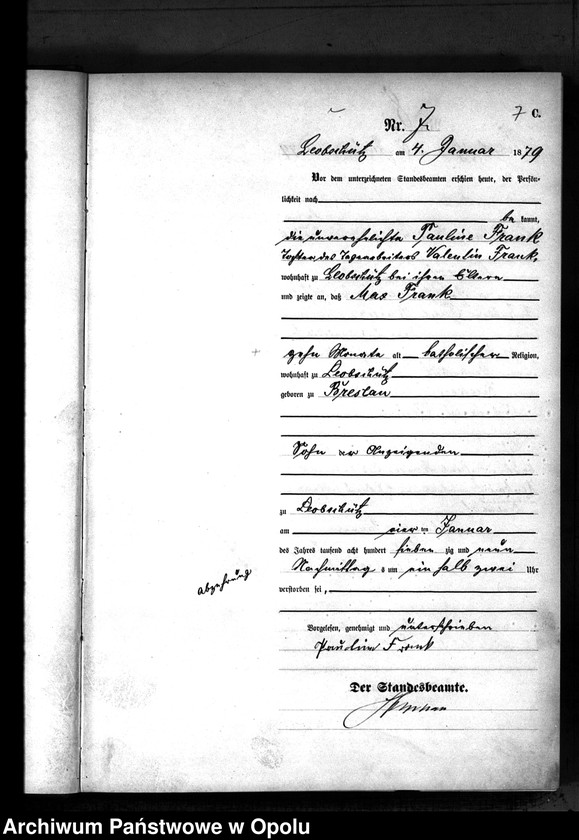 7 C.
Nr. 7.
Leobschütz am 4. Januar 1879
Vor dem unterzeichneten Standesbeamten erschien heute, der Persön-
lichkeit nach
be kannt,
die unverehelichte Pauline Frank
Tochter des Tagearbeiters Valentin Frank,
wohnhaft zu Leobschütz bei ihren Eltern
und zeigte an, daß Max Frank
zehn Monate alt katholischer Religion,
wohnhaft zu Leobschütz
geboren zu Breslau
Sohn der Anzeigenden
zu Leobschütz
am vier ten Januar
des Jahres tausend acht hundert sieben zig und neun
Nachmittag s um ein halb zwei Uhr
verstorben sei,
abzehrung
Vorgelesen, genehmigt und unterschrieben
Pauline Frank
Der Standesbeamte.
Archiwum Państwowe w Opolu